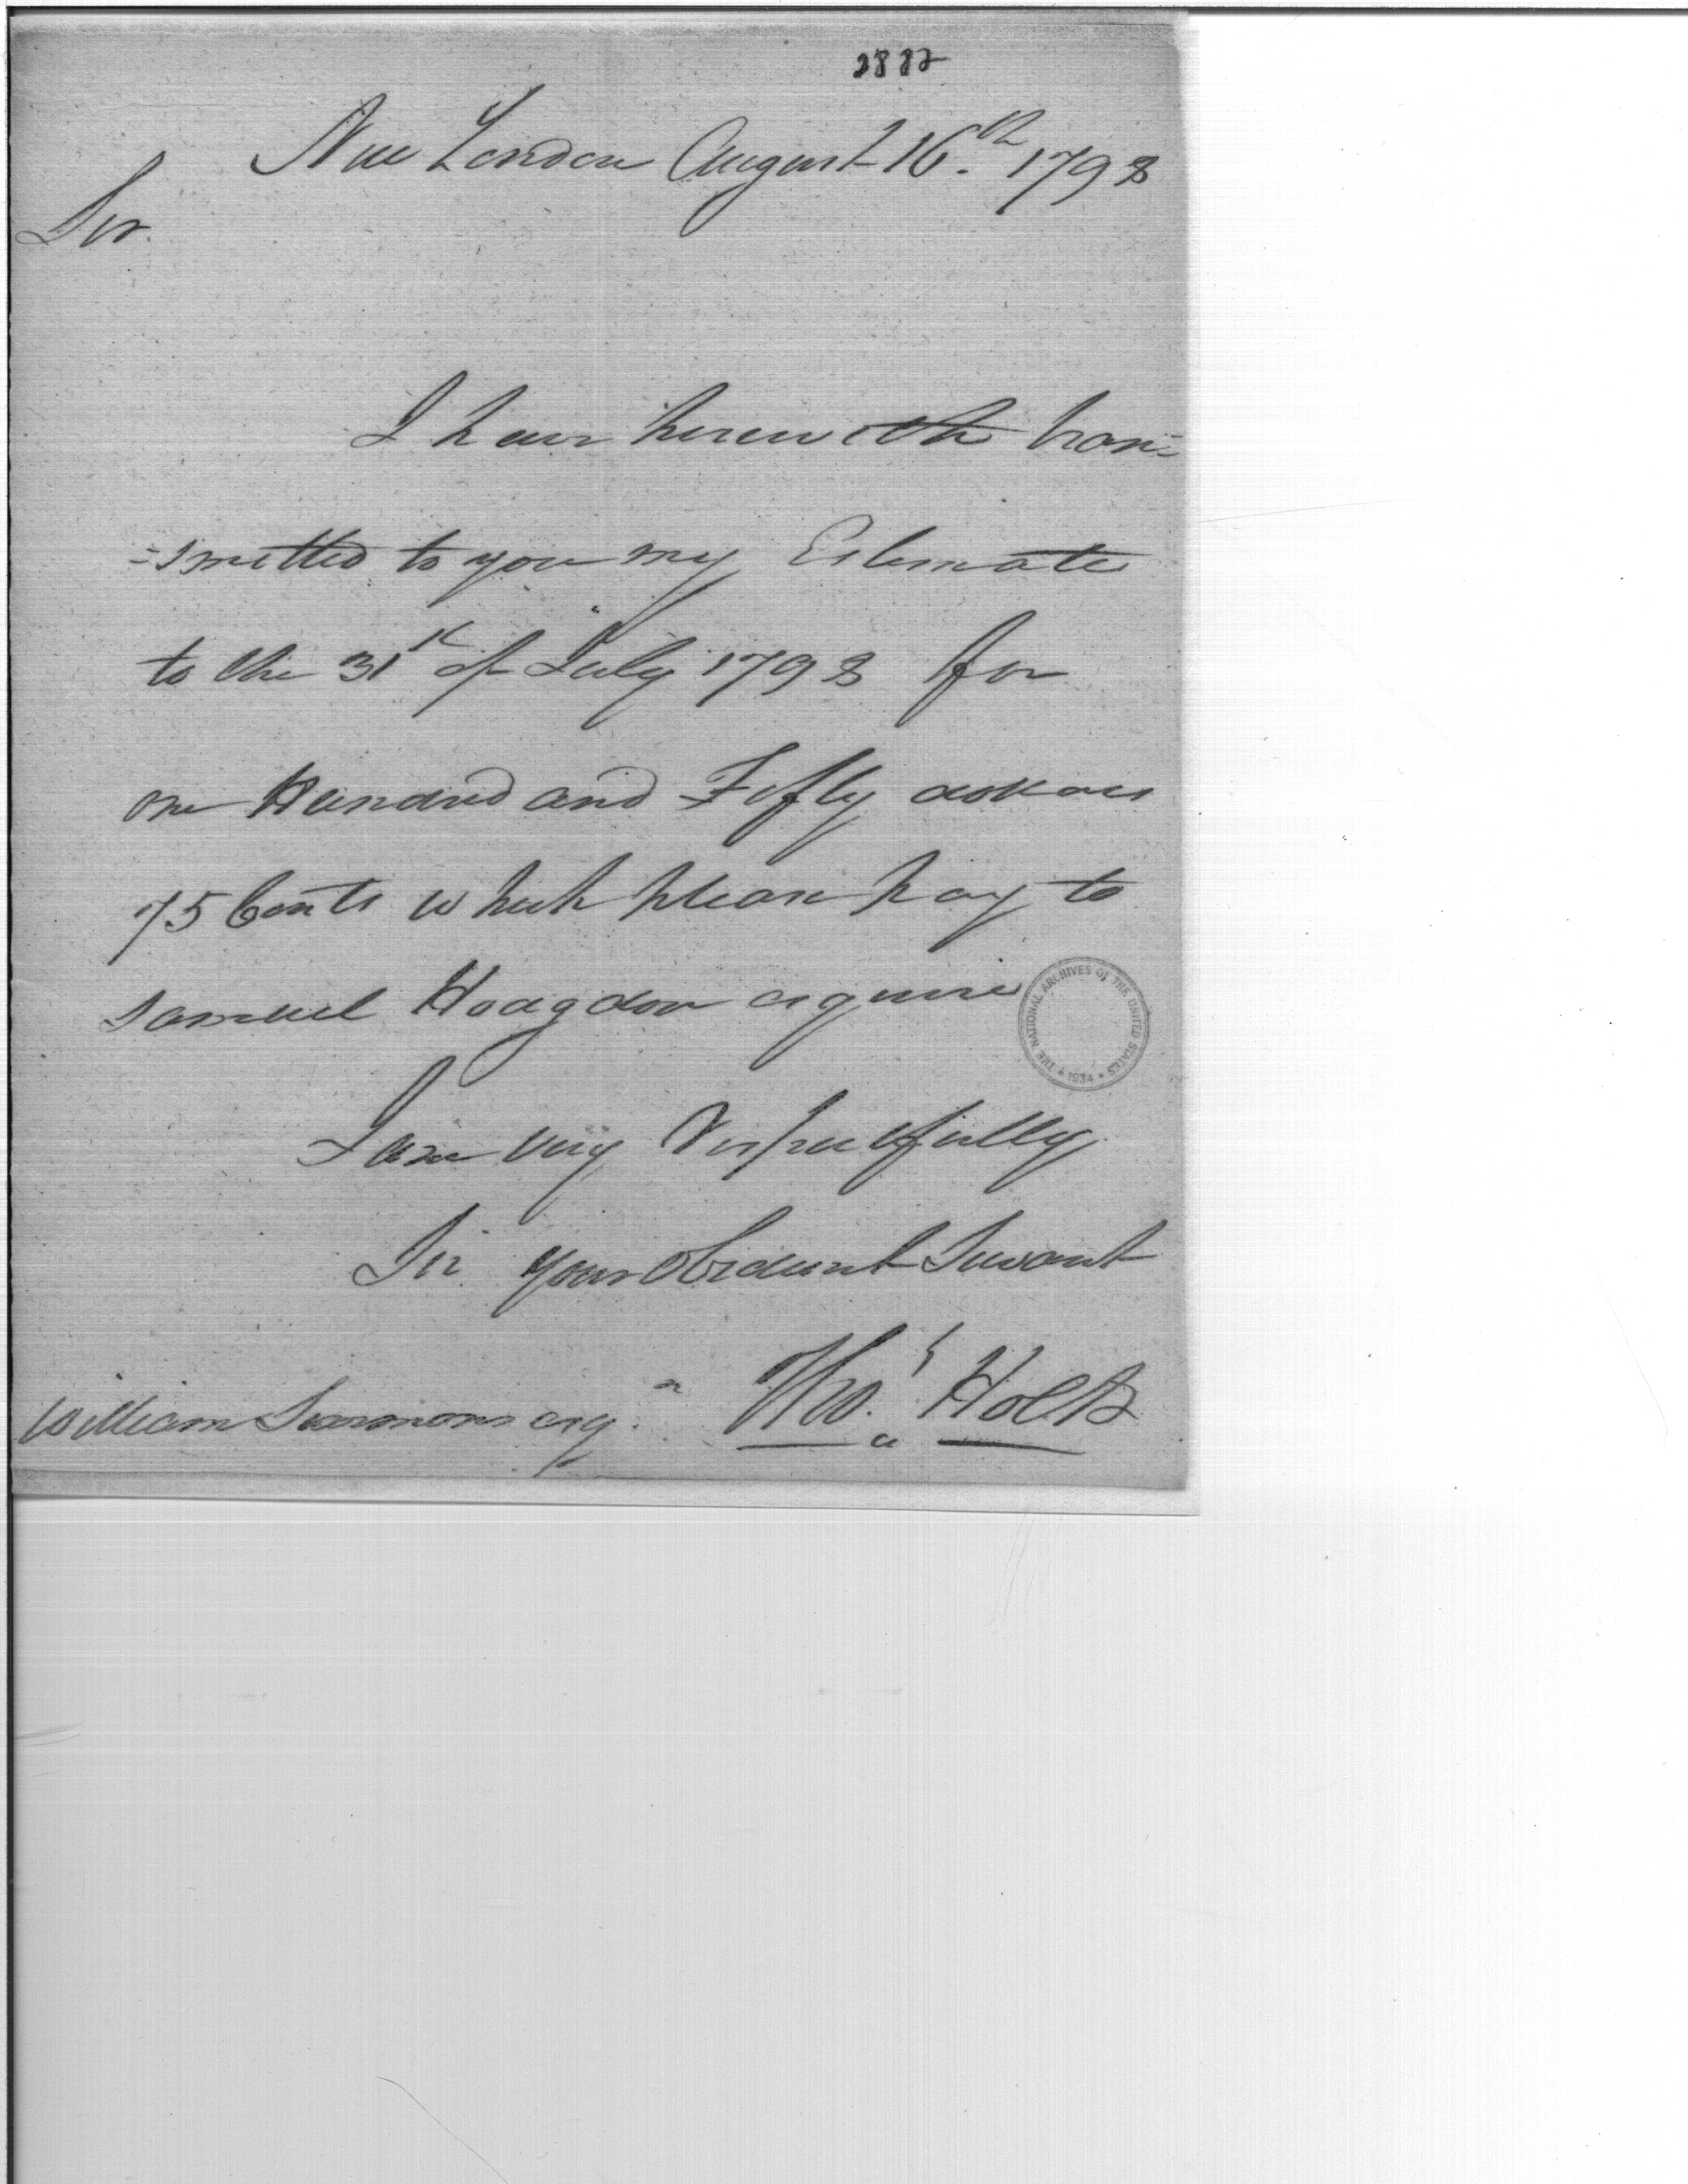 2882
New London August 16.th 1798
Sir
I have herewith tran=
=smitted to you my Estimate
to the 31st of July 1798 for
one Hundred and Fifty dollars
75 Cents which please pay to
Samuel Hodgdon esquire
THE NATIONAL ARCHIVES OF THE UNITED STATES
1934
I am very Respectfully
Sir your Obedient Servant
William Simmons esq.r Tho.s Holt